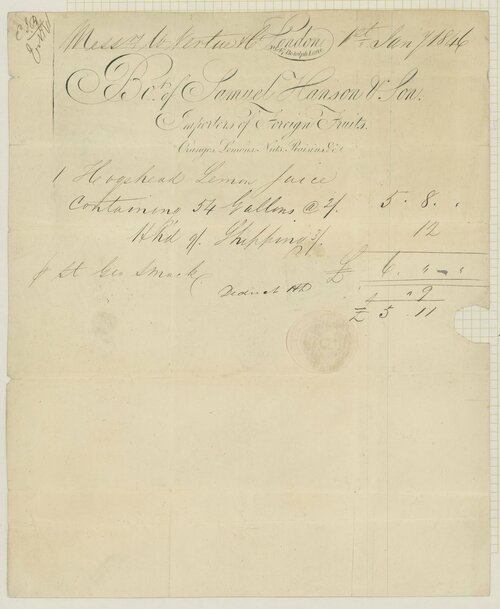 Messrs W. & Co London 1st Jany 1846
Botolph Lane
Bot. of Samuel Hanson & Son.
Importers of Foreign Fruits.
Oranges, Lemons, Nuts, Raisins &c &c
1 Hogshead Lemon Juice
Containing 54 Gallons @ 2/. 5 . 8 . "
Hhd of Shipping 3/. 12
£ 6 . " - "
p St Geo Smack
Deduct
" 9
£ 5 . 11